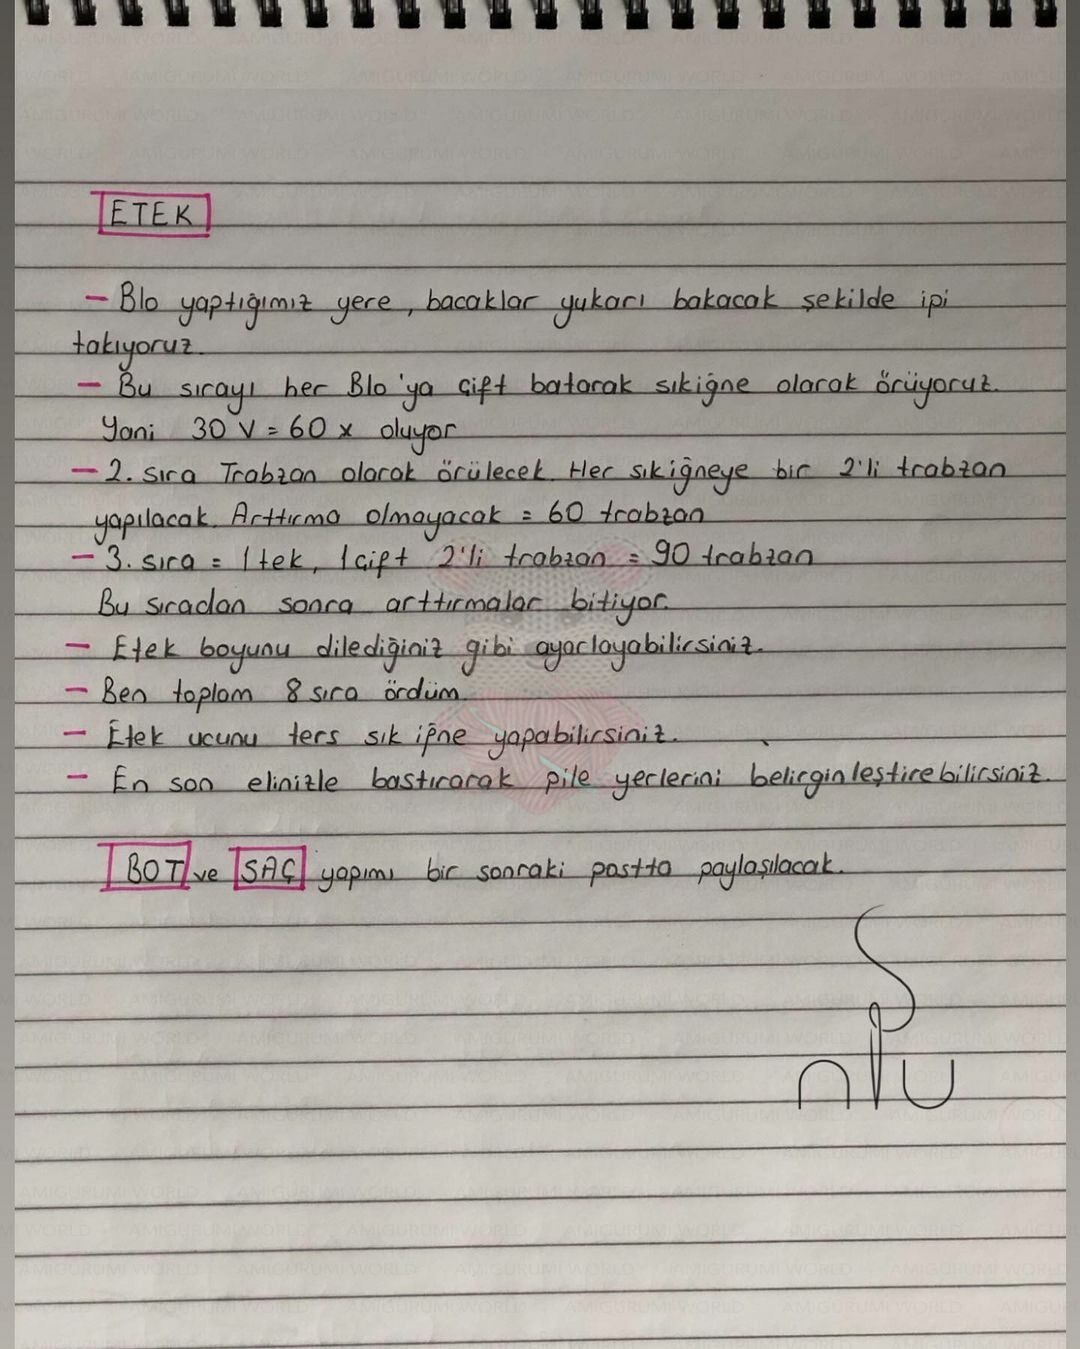 ETEK
- Blo yaptığımız yere, bacaklar yukarı bakacak şekilde ipi
takıyoruz.
- Bu sırayı her Blo'ya çift batarak sıkiğne olarak örüyoruz.
Yani 30 V = 60 x oluyor
- 2. sıra Trabzan olarak örülecek. Her sıkiğneye bir 2'li trabzan
yapılacak. Arttırma olmayacak = 60 trabzan
- 3. sıra = 1 tek, 1 çift 2'li trabzan = 90 trabzan
Bu sıradan sonra arttırmalar bitiyor.
- Etek boyunu dilediğiniz gibi ayarlayabilirsiniz.
- Ben toplam 8 sıra ördüm.
- Etek ucunu ters sık iğne yapabilirsiniz.
- En son elinizle bastırarak pile yerlerini belirginleştirebilirsiniz.
BOT ve SAÇ yapımı bir sonraki postta paylaşılacak.
AMIGURUMI WORLD